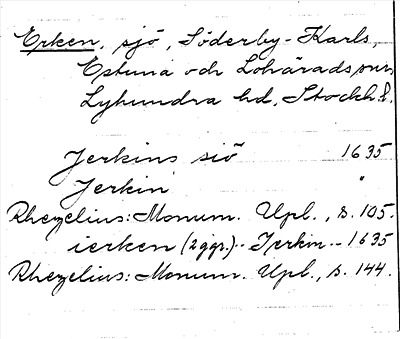 Erken, sjö, Söderby-Karls,
Estuna och Lohärads snr
Lyhundra hd, Stockh. l.
Jerkins siö 1635
Jerkin "
Rhezelius: Monum. Upl., s. 105.
ierken (2 ggr.) .. Jerkin .. 1635
Rhezelius: Monum. Upl., s. 144.